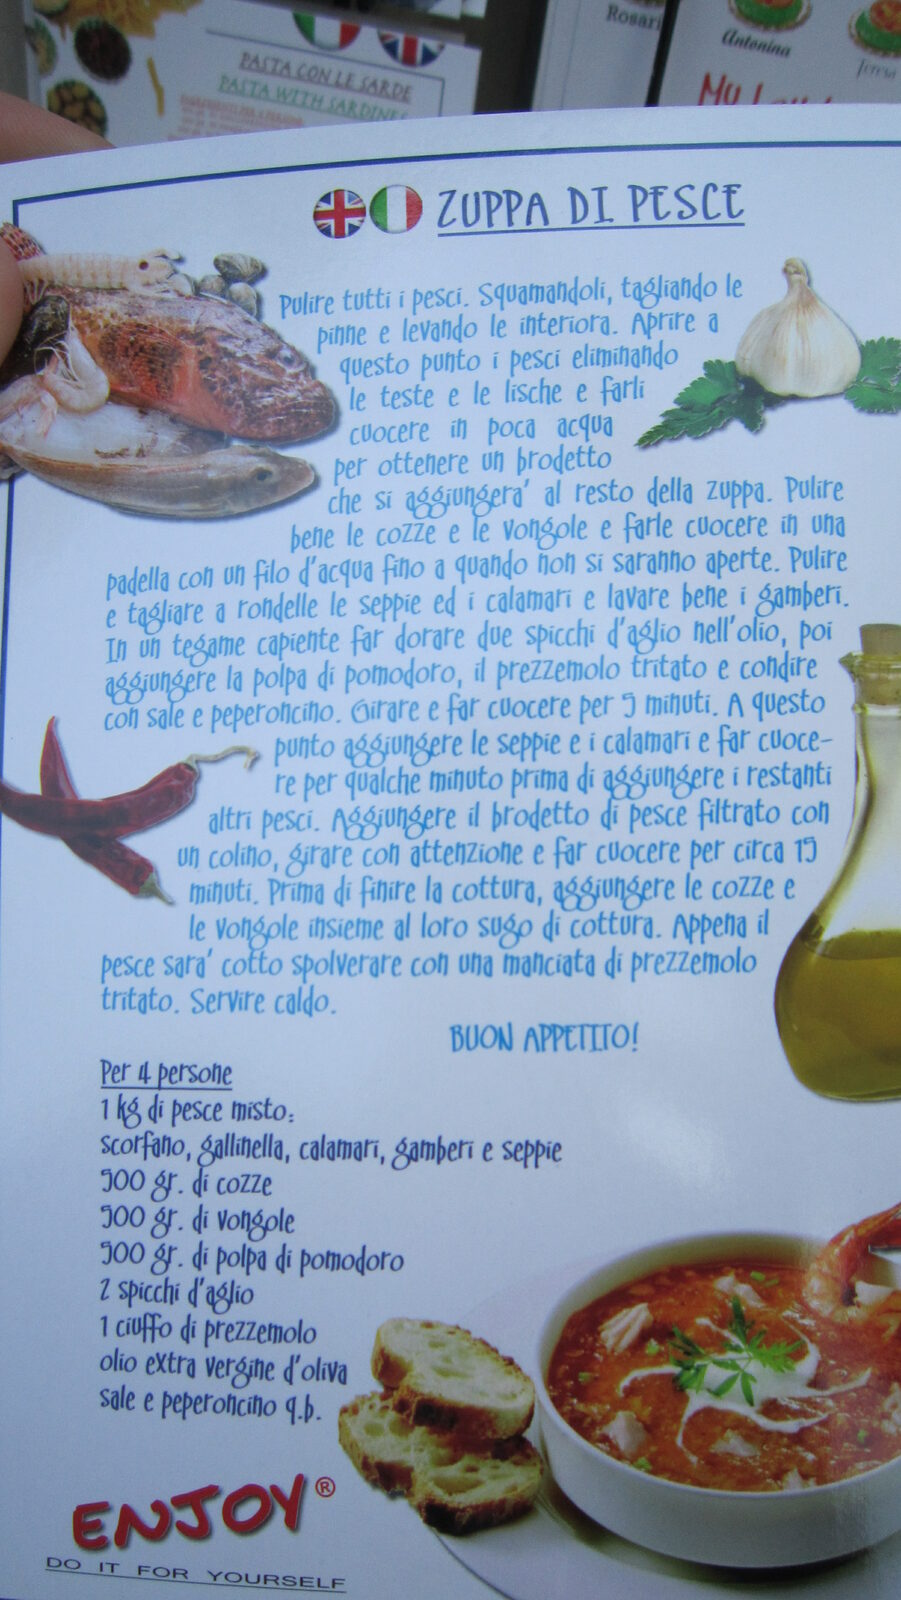 Rosari
Antonina
Teresa
PASTA CON LE SARDE
PASTA WITH SARDINES
ZUPPA DI PESCE
Pulire tutti i pesci. Squamandoli, tagliando le
pinne e levando le interiora. Aprire a
questo punto i pesci eliminando
le teste e le lische e farli
cuocere in poca acqua
per ottenere un brodetto
che si aggiungera' al resto della zuppa. Pulire
bene le cozze e le vongole e farle cuocere in una
padella con un filo d'acqua fino a quando non si saranno aperte. Pulire
e tagliare a rondelle le seppie ed i calamari e lavare bene i gamberi.
In un tegame capiente far dorare due spicchi d'aglio nell'olio, poi
aggiungere la polpa di pomodoro, il prezzemolo tritato e condire
con sale e peperoncino. Girare e far cuocere per 5 minuti. A questo
punto aggiungere le seppie e i calamari e far cuoce-
re per qualche minuto prima di aggiungere i restanti
altri pesci. Aggiungere il brodetto di pesce filtrato con
un colino, girare con attenzione e far cuocere per circa 15
minuti. Prima di finire la cottura, aggiungere le cozze e
le vongole insieme al loro sugo di cottura. Appena il
pesce sara' cotto spolverare con una manciata di prezzemolo
tritato. Servire caldo.
BUON APPETITO!
Per 4 persone
1 kg di pesce misto:
scorfano, gallinella, calamari, gamberi e seppie
500 gr. di cozze
500 gr. di vongole
500 gr. di polpa di pomodoro
2 spicchi d'aglio
1 ciuffo di prezzemolo
olio extra vergine d'oliva
sale e peperoncino q.b.
ENJOY®
DO IT FOR YOURSELF